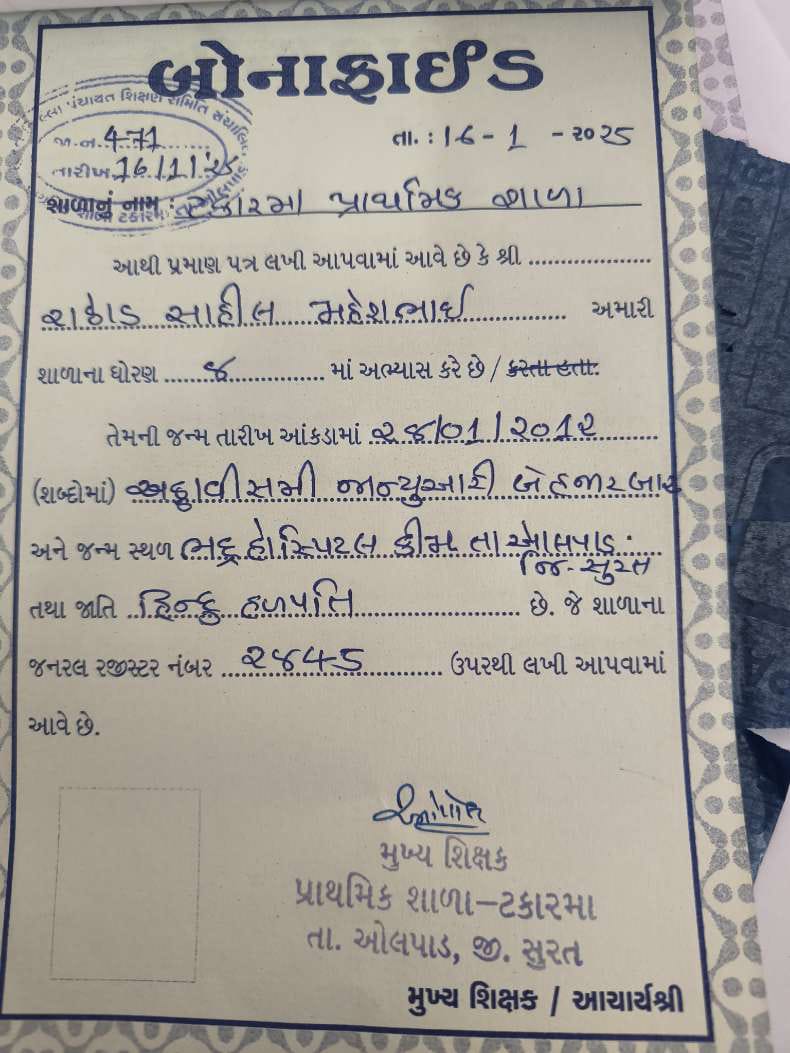 બોનાફાઈડ
લ્લા પંચાયત શિક્ષણ સમિતિ સંચાલિત
જા.ન. 471
તારીખ 16/1/25
તા. : 16 - 1 - ૨૦૨5
શાળાનું નામ : ટકારમા પ્રાથમિક શાળા
આથી પ્રમાણ પત્ર લખી આપવામાં આવે છે કે શ્રી
રાઠોડ સાહીલ મહેશભાઈ અમારી
શાળાના ધોરણ ૭ માં અભ્યાસ કરે છે / કરતા હતા.
તેમની જન્મ તારીખ આંકડામાં ૨૮/01/૨01૨
(શબ્દોમાં) અઠ્ઠાવીસમી જાન્યુઆરી બેહજાર બાર
અને જન્મ સ્થળ ભદ્ર હોસ્પિટલ કીમ તા ઓલપાડ.
જિ-સુરત
તથા જાતિ હિન્દુ હળપતિ છે. જે શાળાના
જનરલ રજીસ્ટર નંબર ૨૪45 ઉપરથી લખી આપવામાં
આવે છે.
મુખ્ય શિક્ષક
પ્રાથમિક શાળા-ટકારમા
તા. ઓલપાડ, જી. સુરત
મુખ્ય શિક્ષક / આચાર્યશ્રી